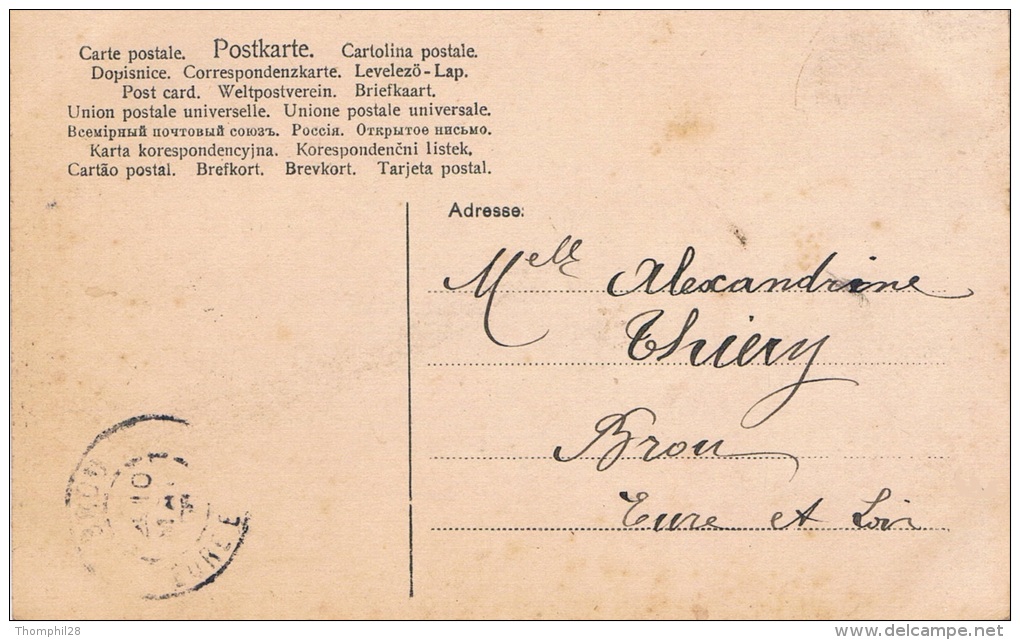 Carte postale. Postkarte. Cartolina postale.
Dopisnice. Correspondenzkarte. Levelezö-Lap.
Post card. Weltpostverein. Briefkaart.
Union postale universelle. Unione postale universale.
Всемірный почтовый союзъ. Россія. Открытое письмо.
Karta korespondencyjna. Korespondenčni listek.
Cartão postal. Brefkort. Brevkort. Tarjeta postal.
Adresse:
Melle Alexandrine
Thiery
Brou
Eure et Loir
Thomphil28
www.delcampe.net